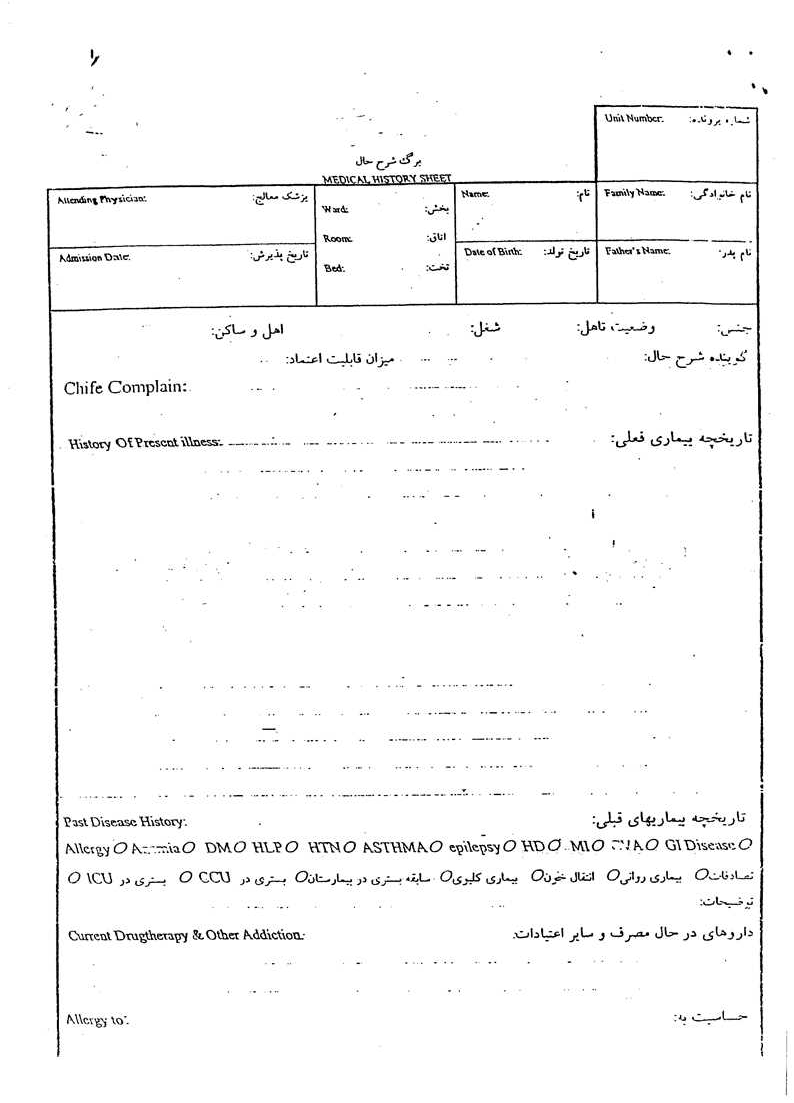 Unit Number: شماره پرونده:
برگ شرح حال
MEDICAL HISTORY SHEET
Attending Physician: پزشک معالج:
Ward: بخش:
Room: اتاق:
Bed: تخت:
Name: نام:
Family Name: نام خانوادگی:
Admission Date: تاریخ پذیرش:
Date of Birth: تاریخ تولد:
Father's Name: نام پدر:
جنس: وضعیت تاهل: شغل: اهل و ساکن:
گوینده شرح حال: میزان قابلیت اعتماد:
Chife Complain:
History Of Present illness: تاریخچه بیماری فعلی:
Past Disease History: تاریخچه بیماریهای قبلی:
Allergy O O DM O HLP O HTN O ASTHMA O epilepsy O HD O MI O O GI Disease O
تصادفات O بیماری روانی O انتقال خون O بیماری کلیوی O سابقه بستری در بیمارستان O بستری در CCU O بستری در ICU O
توضیحات:
Current Drugtherapy & Other Addiction: داروهای در حال مصرف و سایر اعتیادات:
Allergy to: حساسیت به: